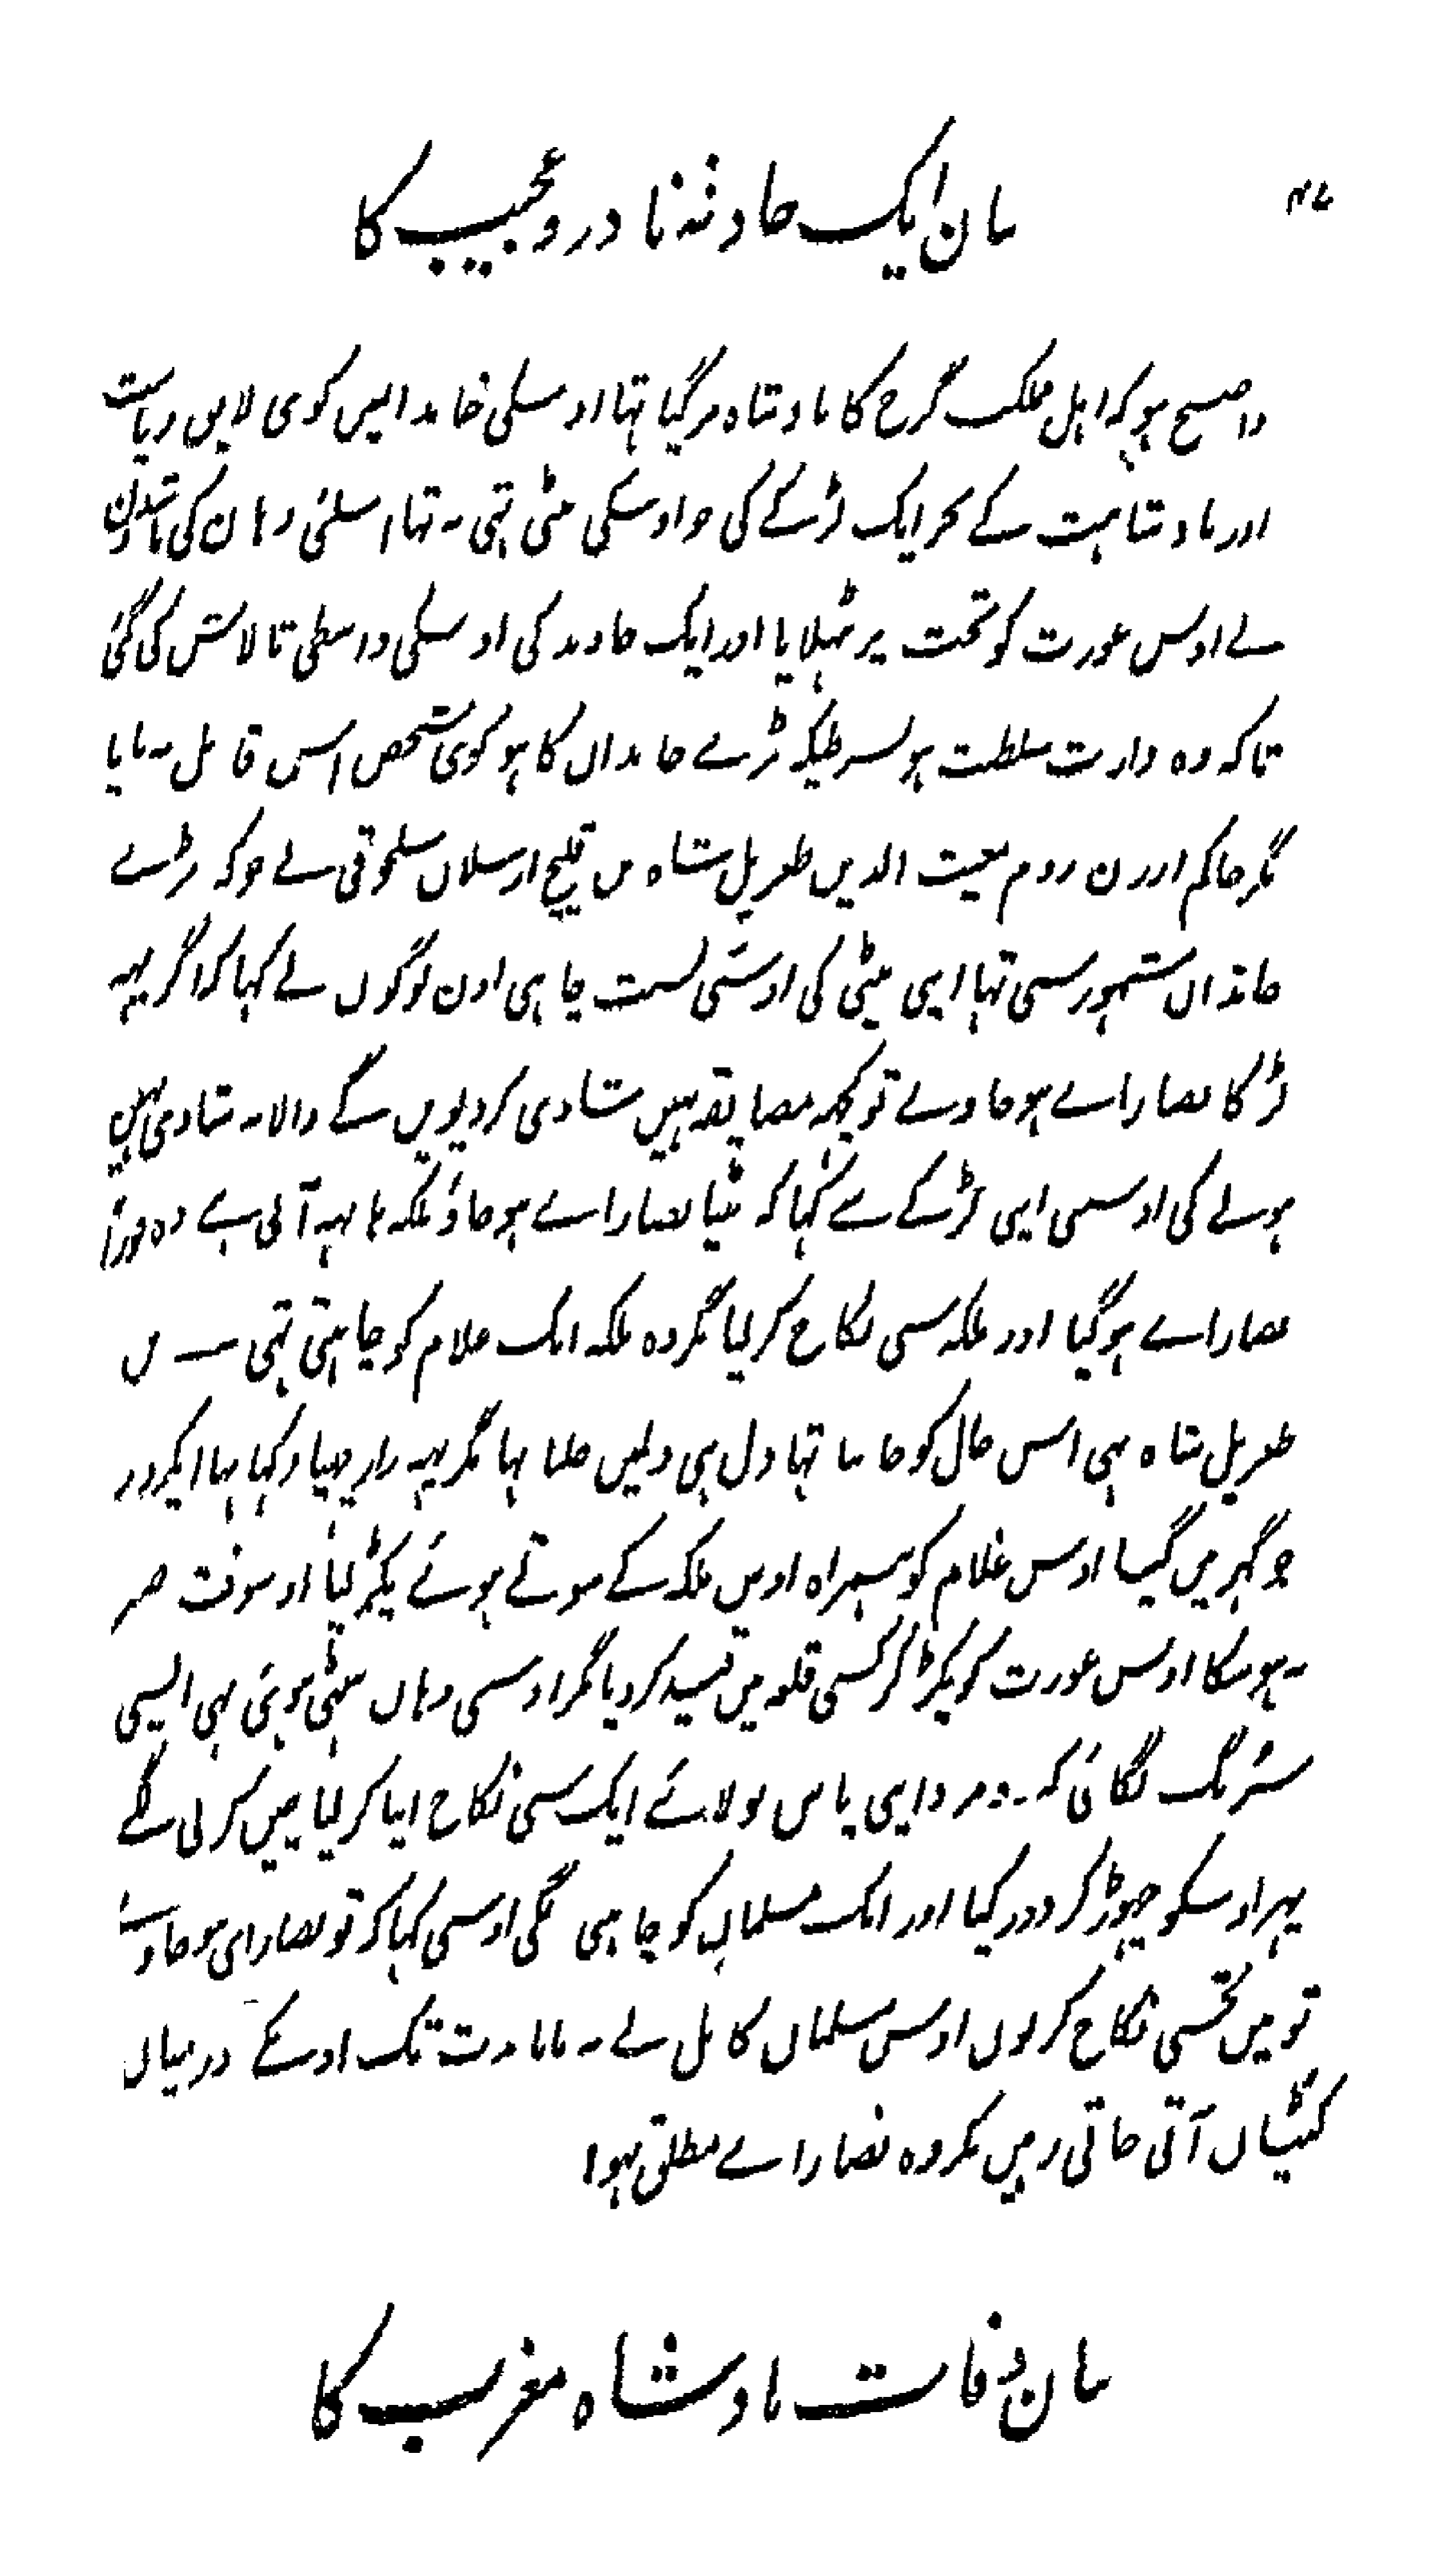 ۴۷
بیان ایک حادثہ نادر و عجیب کا
واضح ہو کہ اہل ملک گرج کا بادشاہ مر گیا تہا اوسکی خاندان میں کوی لایق ریاست
اور بادشاہت کے بجز ایک لڑکے کی جو اوسکی بیٹی تہی نہ تہا اسلئی وہان کی باشندون
نے اوس عورت کو تخت پر بٹہلایا اور ایک خاوند کی اوسکی واسطی تالاش کی گئی
تاکہ وہ وارث سلطنت ہو بشرطیکہ بڑے خاندان کا ہو کوی شخص اس قابل نہ پایا
مگر حاکم ارزن روم مغیث الدین طغریل شاہ بن قلیج ارسلان سلجوقی نے جو کہ بڑے
خاندان مشہور سی تہا اپنی بیٹی کی اوسسی نسبت چاہی اون لوگوں نے کہا کہ اگر یہہ
لڑکا نصارا ے ہو جاوے تو کچہہ مضایقہ نہیں شادی کر دیویں گے والا نہ شادی نہیں
ہونے کی اوسی اپنی لڑکے سے کہا کہ بیٹا نصارا ے ہو جاؤ ملکہ ہاتہہ آتی ہے وہ فوراً
نصارا ے ہو گیا اور ملکہ سی نکاح کر لیا مگر وہ ملکہ ایک غلام کو چاہتی تہی
طغریل شاہ بہی اس حال کو جانتا تہا دل ہی دلمیں جلتا تہا مگر یہہ راز چہپا رکہا تہا ایکروز
جو گہر میں گیا اوس غلام کو ہمراہ اوس ملکہ کے سوتے ہوئے پکڑ لیا اوسوقت صبر
نہ ہو سکا اوس عورت کو پکڑا کر کسی قلعہ میں قید کر دیا مگر اوسی وہاں بیٹہی ہوئی بہی ایسی
سرنگ لگائی کہ دو مرد اپنی پاس بولائے ایک سی نکاح اپنا کر لیا پہر کر لی کے
پہر اوسکو چہوڑ کر دور کیا اور ایک مسلمان کو چاہی لگی اوسی کہا کہ تو نصارای ہو جاوے
تو میں تجہسی نکاح کر لوں اوس مسلمان کامل نے نہ مانا مدت تک اونکے درمیان
کٹنیاں آتی جاتی رہیں مگر وہ نصارا ے مطلق نہوا
بیان وفات بادشاہ مغرب کا